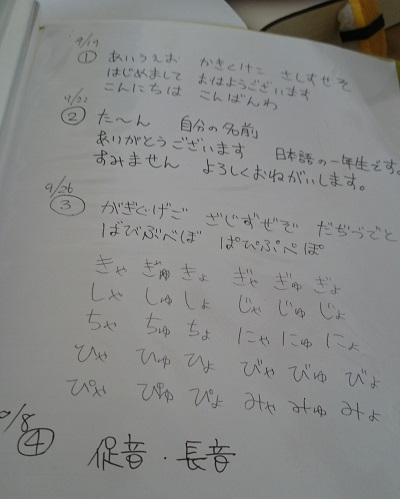 9/19
① あいうえお かきくけこ さしすせそ
はじめまして おはようございます
こんにちは こんばんわ
9/22
② た〜ん 自分の名前
ありがとうございます 日本語の一年生です。
すみません よろしくおねがいします。
9/26
③ がぎぐげご ざじずぜぞ だぢづでど
ばびぶべぼ ぱぴぷぺぽ
きゃ きゅ きょ ぎゃ ぎゅ ぎょ
しゃ しゅ しょ じゃ じゅ じょ
ちゃ ちゅ ちょ にゃ にゅ にょ
ひゃ ひゅ ひょ びゃ びゅ びょ
ぴゃ ぴゅ ぴょ みゃ みゅ みょ
0/8
④ 促音・長音